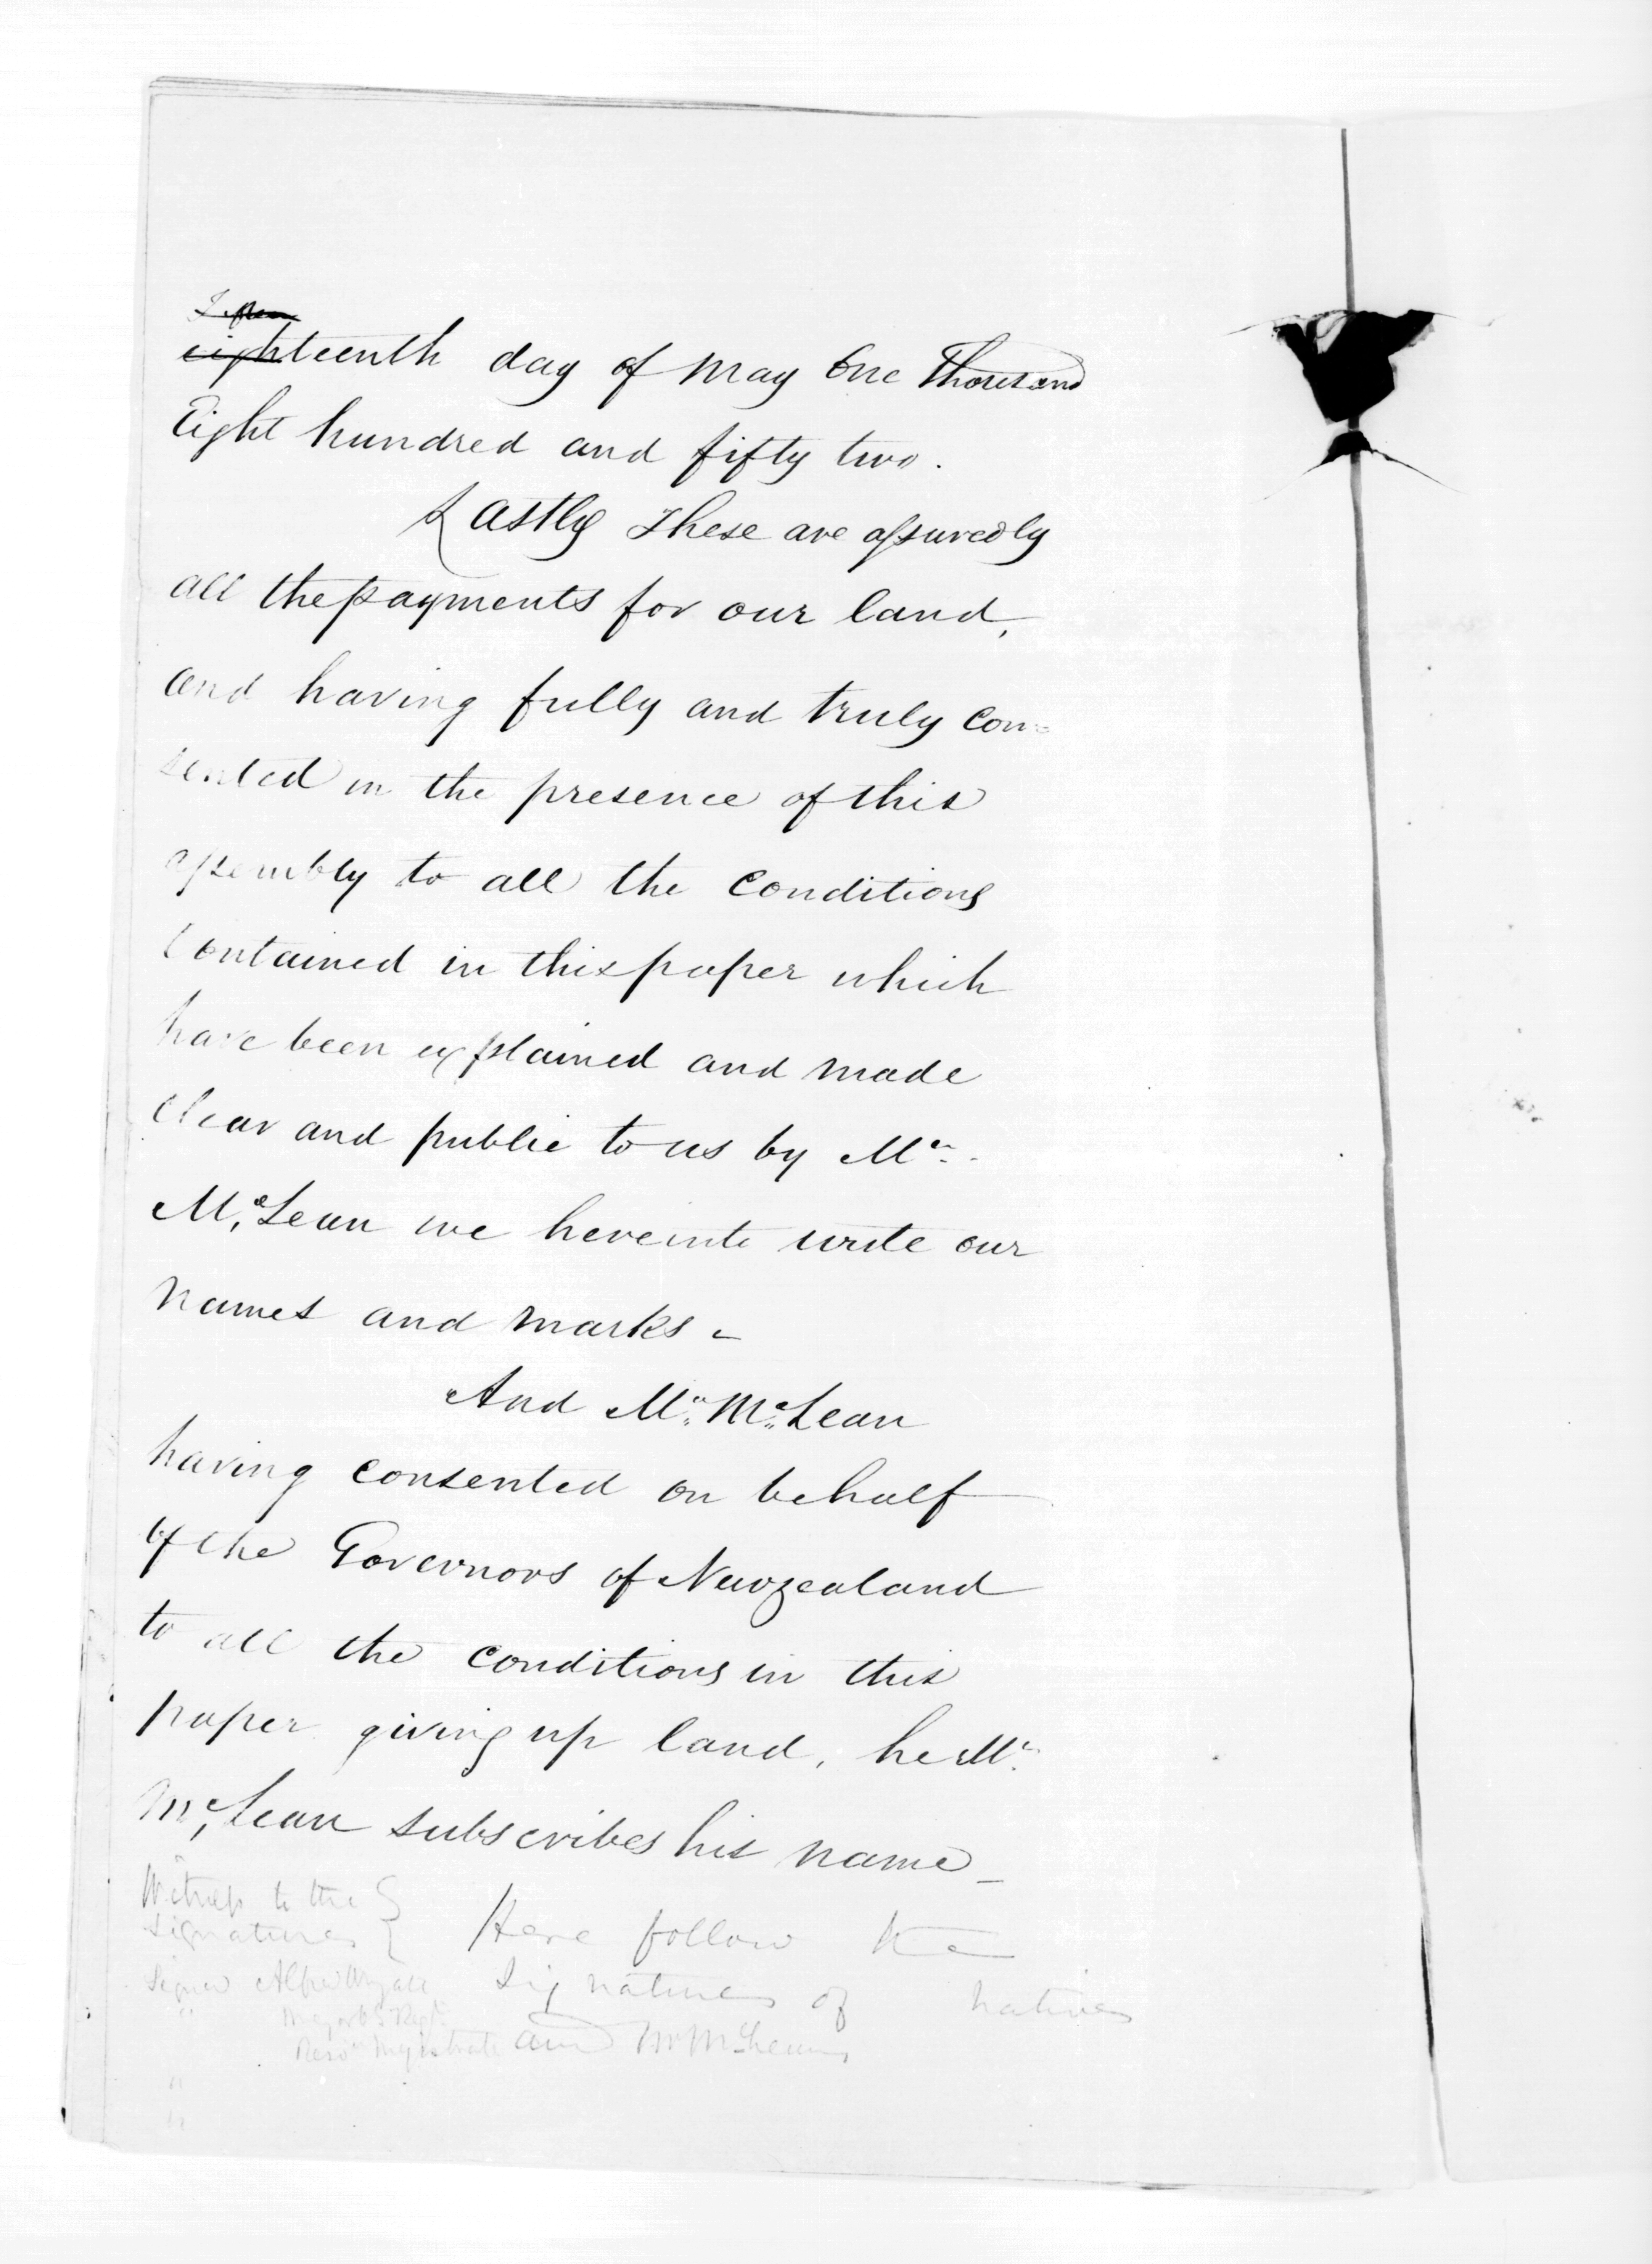 eighteenth day of May One Thousand
Eight hundred and fifty two.
Lastly These are assuredly
all the payments for our land,
and having fully and truly con=
sented in the presence of this
assembly to all the Conditions
Contained in this paper which
have been explained and made
clear and public to us by Mr.
McLean we hereinto write our
names and marks -
And Mr. McLean
having consented on behalf
of the Governors of Newzealand
to all the conditions in this
paper giving up land, he Mr.
McLean subscribes his name -
Witness to the
Signatures
Signed Alfred Wyatt
Major 65 Regt
Magistrate
Here follow the
Signatures of natives
and Mr McLean